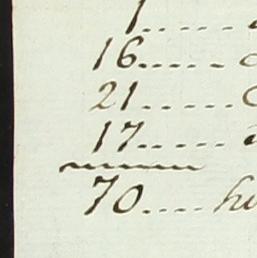 1......
16......
21......
17......
70....